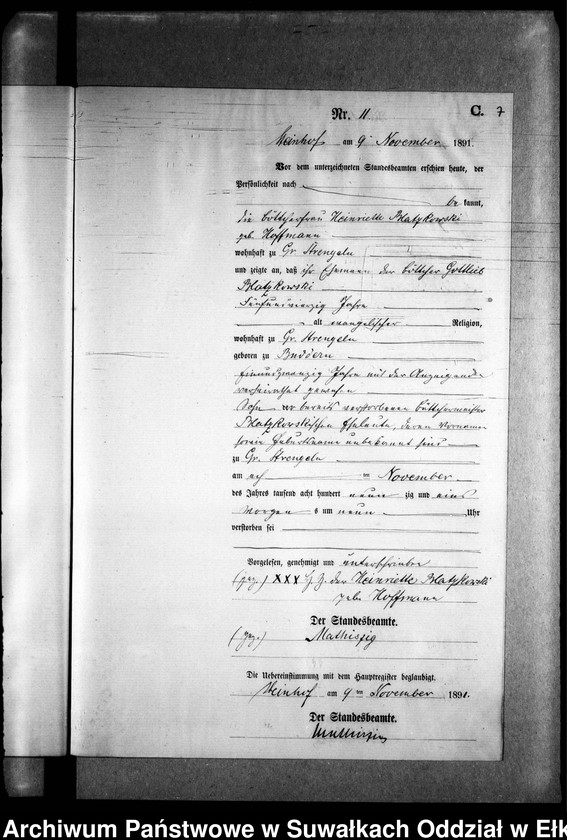 Nr. 11
C. 7
Weinhof am 9 November 1891.
Vor dem unterzeichneten Standesbeamten erschien heute, der
Persönlichkeit nach
be kannt,
die Böttcherfrau Heinriette Platzkowski
geb. Hoffmann
wohnhaft zu Gr. Strengeln
und zeigte an, daß ihr Ehemann der Böttcher Gottlieb
Platzkowski
Fünfundvierzig Jahre
alt evangelischer Religion,
wohnhaft zu Gr. Strengeln
geboren zu Buddern
einundzwanzig Jahre mit der Anzeigenden
verheirathet gewesen
Sohn der bereits verstorbenen Böttchermeister
Platzkowskischen Eheleute, deren Vornamen
sowie Geburtsname unbekannt sind
zu Gr. Strengeln
am November
des Jahres tausend acht hundert neun zig und eins
Morgen s um neun Uhr
verstorben sei
Vorgelesen, genehmigt und unterschrieben
(gez.) XXX H. Z. der Heinriette Platzkowski
geb. Hoffmann
Der Standesbeamte.
(gez.) Mathiszig
Die Uebereinstimmung mit dem Hauptregister beglaubigt.
Weinhof am 9 November 1891.
Der Standesbeamte.
Mathiszig
Archiwum Państwowe w Suwałkach Oddział w Ełk